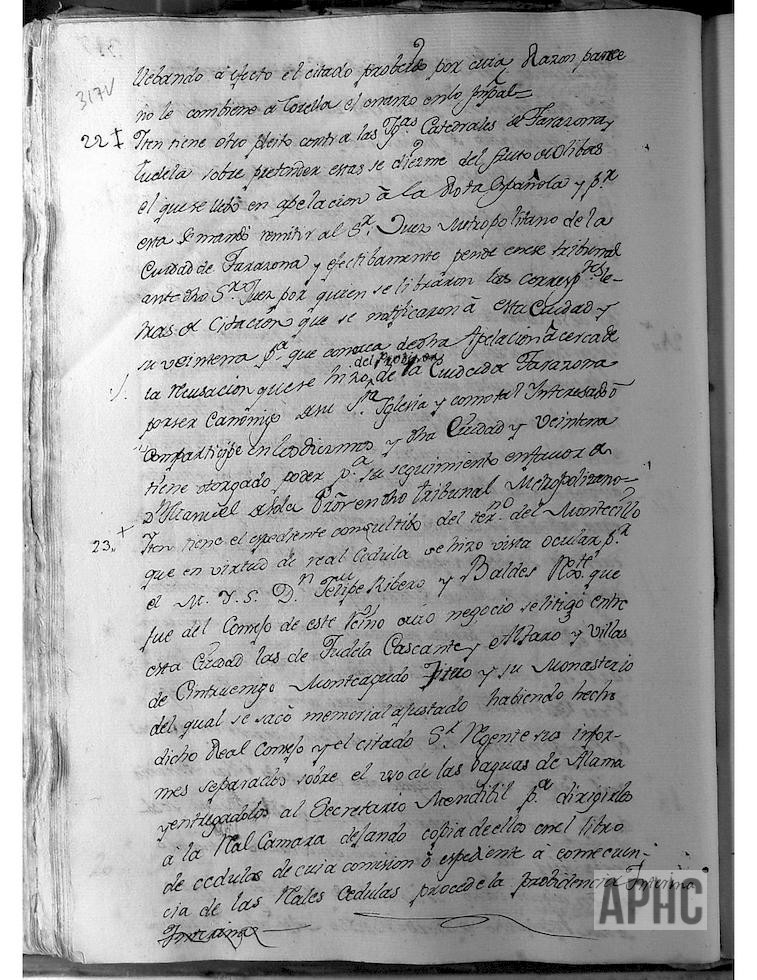 317V
llebando á efecto el citado probeido por cuia Razon parece
no le combiene á Corella el onrarzo en lo prãl=
22 Iten tiene otro pleito contra las Yg.as Catedrales de Tarazona y
Tudela sobre pretender estas se diezme del fruto de olibas
el que se llebó en apelacion á la Rota Española y p.r
esta se mandó remitir al S.r Juez Metropolitano de la
Ciudad de Tarazona y efectibamente pende en ese tribunal
ante dho S.r Juez por quien se libraron las corresp.tes le-
tras de Citacion que se notificaron á esta Ciudad y
su veintena p.a que conozca de dha Apelacion á cerca de
la recusacion que se hizo del Probisor de la Ciudad de Tarazona
por ser Canonigo de su S.ta Yglesia y como tal Interesado ó
Compartizipe en los diezmos y dha Ciudad y veintena
tiene otorgado poder p.a su seguimiento en favor de
D.n Manuel Prõr en dho tribunal Metropolitano=
23. Iten tiene el espediente consultibo del ter.no del Montecillo
que en virtud de real Cedula se hizo vista ocular p.r
el M. Y. S. D.n Felipe Ribero y Baldes que
fue del Consejo de este Reino cuio negocio se litigó entre
esta Ciudad las de Tudela Cascante y Alfaro y Villas
de Cintruenigo Monteagudo Fitero y su Monasterio
del qual se sacó memorial ajustado habiendo hecho
dicho Real Consejo y el citado S.r Regente sus infor-
mes separados sobre el uso de las vaguas de Alama
y entregadolos al Secretario Mendibil p.a dirigirlos
á la Real Camara dejando copia de ellos en el libro
de cedulas de cuia comision ó espediente á consecuen-
cia de las Reales Cedulas procede la probidencia Interina
Interina
APHC